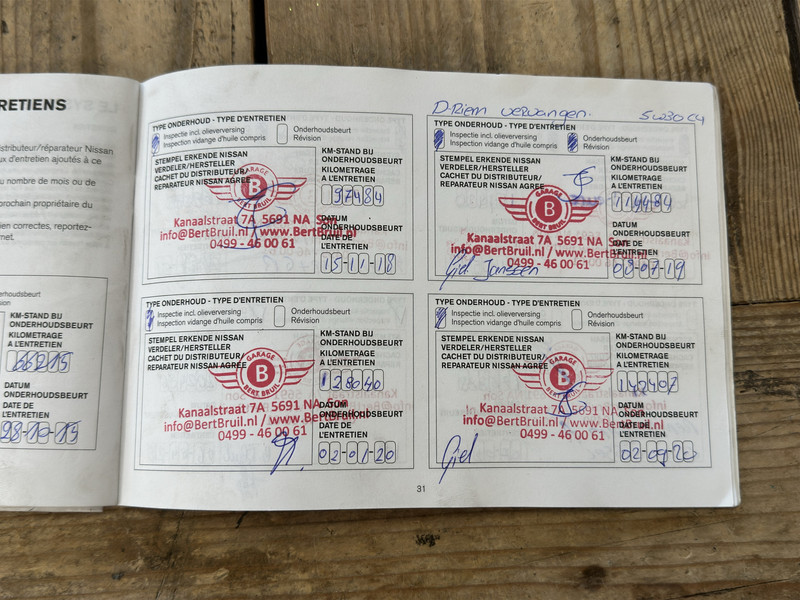 RETIENS
stributeur/réparateur Nissan
ux d'entretien ajoutés à ce
u nombre de mois ou de
prochain propriétaire du
ien correctes, reportez-
rnet.
nderhoudsbeurt
sion
KM-STAND BIJ
ONDERHOUDSBEURT
KILOMETRAGE
A L'ENTRETIEN
66215
DATUM
ONDERHOUDSBEURT
DATE DE
L'ENTRETIEN
28-10-15
TYPE ONDERHOUD - TYPE D'ENTRETIEN
Inspectie incl. olieverversing
Inspection vidange d'huile compris
Onderhoudsbeurt
Révision
STEMPEL ERKENDE NISSAN
VERDELER/HERSTELLER
CACHET DU DISTRIBUTEUR/
REPARATEUR NISSAN AGREE
KM-STAND BIJ
ONDERHOUDSBEURT
KILOMETRAGE
A L'ENTRETIEN
97484
GARAGE
B
BERT BRUIL
Kanaalstraat 7A 5691 NA Son
info@BertBruil.nl / www.BertBruil.nl
0499 - 46 00 61
DATUM
ONDERHOUDSBEURT
DATE DE
L'ENTRETIEN
15-11-18
D-Riem vervangen. 5W30 C4
TYPE ONDERHOUD - TYPE D'ENTRETIEN
Inspectie incl. olieverversing
Inspection vidange d'huile compris
Onderhoudsbeurt
Révision
STEMPEL ERKENDE NISSAN
VERDELER/HERSTELLER
CACHET DU DISTRIBUTEUR/
REPARATEUR NISSAN AGREE
KM-STAND BIJ
ONDERHOUDSBEURT
KILOMETRAGE
A L'ENTRETIEN
114484
GARAGE
B
BERT BRUIL
Kanaalstraat 7A 5691 NA Son
info@BertBruil.nl / www.BertBruil.nl
0499 - 46 00 61
Giel Janssen
DATUM
ONDERHOUDSBEURT
DATE DE
L'ENTRETIEN
08-07-19
TYPE ONDERHOUD - TYPE D'ENTRETIEN
Inspectie incl. olieverversing
Inspection vidange d'huile compris
Onderhoudsbeurt
Révision
STEMPEL ERKENDE NISSAN
VERDELER/HERSTELLER
CACHET DU DISTRIBUTEUR/
REPARATEUR NISSAN AGREE
KM-STAND BIJ
ONDERHOUDSBEURT
KILOMETRAGE
A L'ENTRETIEN
128040
GARAGE
B
BERT BRUIL
Kanaalstraat 7A 5691 NA Son
info@BertBruil.nl / www.BertBruil.nl
0499 - 46 00 61
DATUM
ONDERHOUDSBEURT
DATE DE
L'ENTRETIEN
02-01-20
TYPE ONDERHOUD - TYPE D'ENTRETIEN
Inspectie incl. olieverversing
Inspection vidange d'huile compris
Onderhoudsbeurt
Révision
STEMPEL ERKENDE NISSAN
VERDELER/HERSTELLER
CACHET DU DISTRIBUTEUR/
REPARATEUR NISSAN AGREE
KM-STAND BIJ
ONDERHOUDSBEURT
KILOMETRAGE
A L'ENTRETIEN
142407
GARAGE
B
BERT BRUIL
Kanaalstraat 7A 5691 NA Son
info@BertBruil.nl / www.BertBruil.nl
0499 - 46 00 61
Giel
DATUM
ONDERHOUDSBEURT
DATE DE
L'ENTRETIEN
02-09-20
31